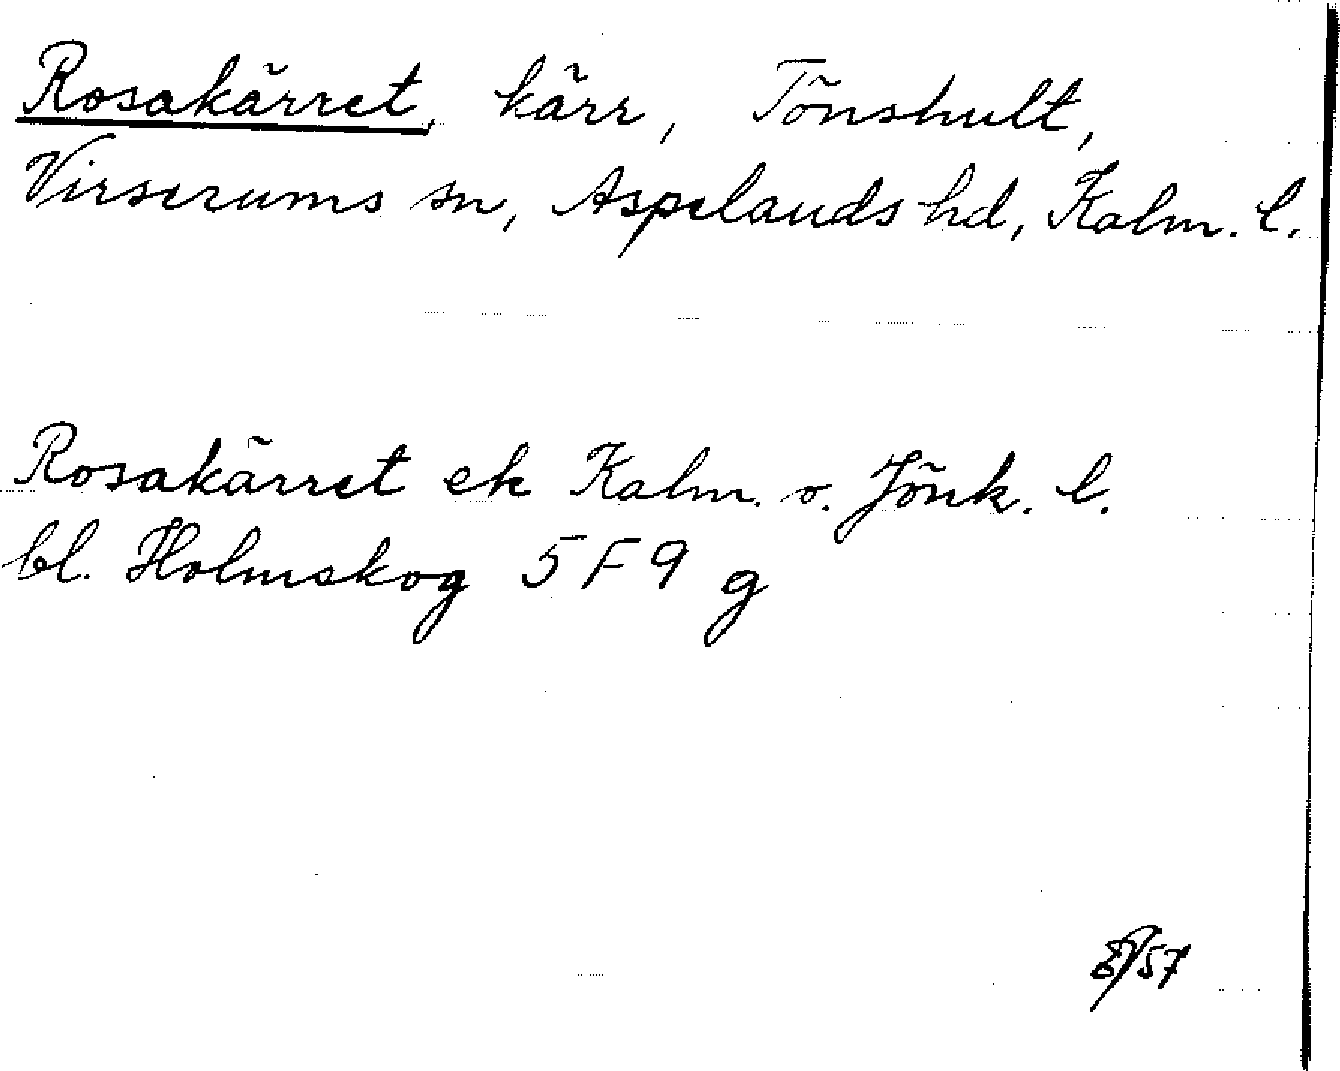 Rosakärret, kärr, Tönshult,
Virserums sn, Aspelands hd, Kalm. l.
Rosakärret ek Kalm. o. Jönk. l.
bl. Holmskog 5 F 9 g